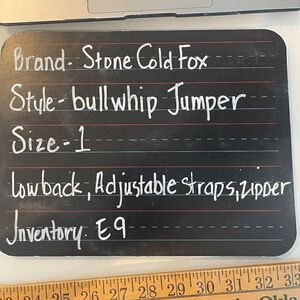 Brand- Stone Cold Fox
Style- bullwhip Jumper
Size- 1
Lowback, Adjustable straps, zipper
Inventory. E9
8 29 30 31 32 33 34 35 36 37 38 39 40